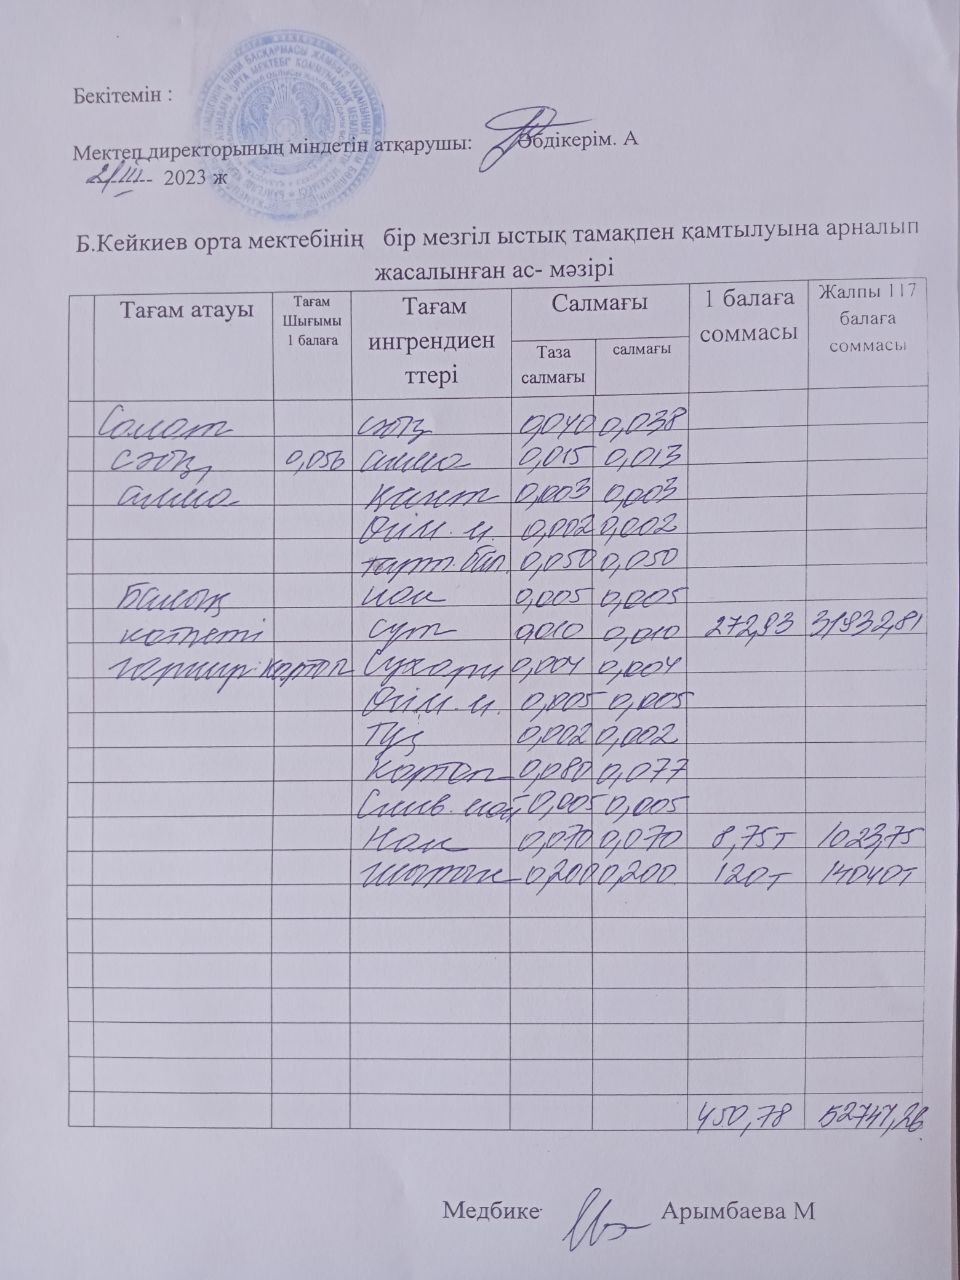 Бекітемін :
Мектеп директорының міндетін атқарушы: Әбдікерім. А
21/III-- 2023 ж
Б.Кейкиев орта мектебінің бір мезгіл ыстық тамақпен қамтылуына арналып
жасалынған ас- мәзірі
Тағам атауы Тағам Шығымы 1 балаға Тағам ингрендиен ттері Салмағы 1 балаға соммасы Жалпы 117 балаға соммасы
Таза салмағы салмағы
Салат сәбіз 0,040 0,038
сәбіз, 0,056 алма 0,015 0,013
алма қант 0,003 0,003
Өсім. м. 0,002 0,002
тарт. бал. 0,050 0,050
Балық нан 0,005 0,005
котлеті сүт 0,010 0,010 272,93 31932,81
гарнир картоп Сухари 0,004 0,004
Өсім. м. 0,005 0,005
Тұз 0,002 0,002
Картоп 0,080 0,077
Слив. май 0,005 0,005
Нан 0,070 0,070 8,75т 1023,75
0,200 0,200 120т 14040т
450,78 52747,26
Медбике Арымбаева М